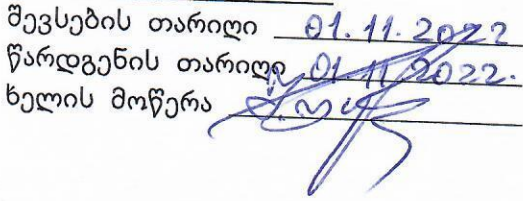 შევსების თარიღი 01.11.2022
წარდგენის თარიღი 01.11.2022.
ხელის მოწერა